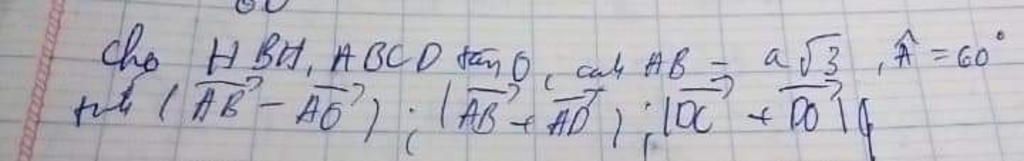 Cho HBH, ABCD tâm O, cạnh AB = a√3, Â = 60°
tính |\overrightarrow{AB} - \overrightarrow{AO}|; |\overrightarrow{AB} + \overrightarrow{AD}|; |\overrightarrow{DC} + \overrightarrow{DO}|